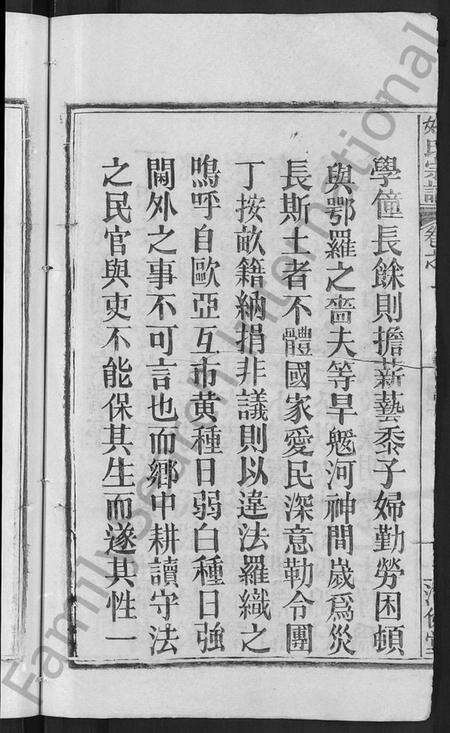 學僮長餘則擔薪藝黍子婦勤勞困頓
與鄂羅之嗇夫等旱魃河神間嵗爲災
長斯土者不體國家愛民深意勒令團
丁按畝籍納捐非議則以違法羅織之
嗚呼自歐亞互市黄種日弱白種日強
閫外之事不可言也而鄉中耕讀守法
之民官與吏不能保其生而遂其性一
氏宗譜 卷之
FamilySearch International